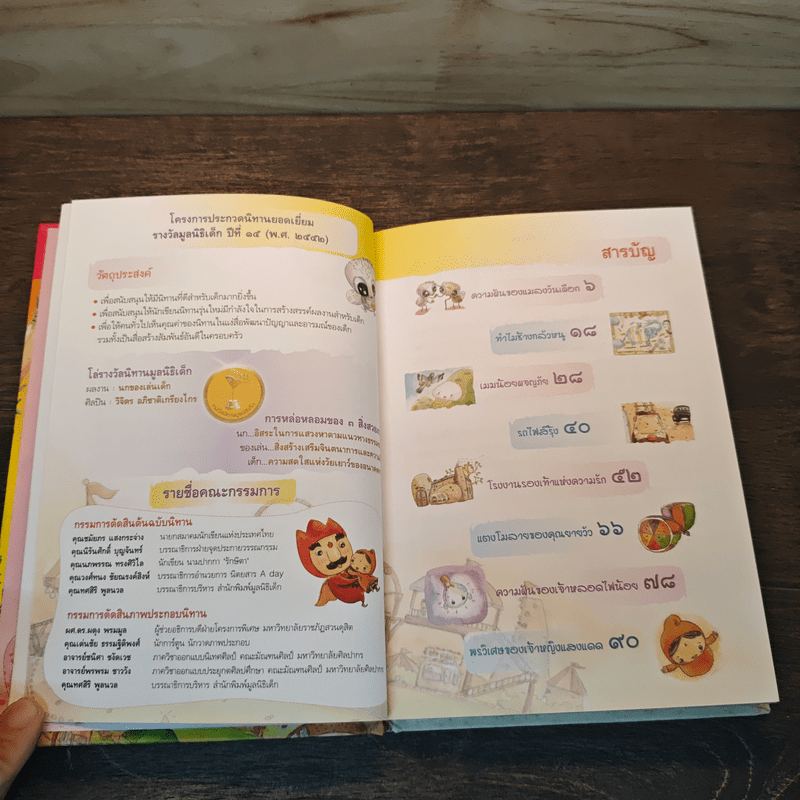 โครงการประกวดนิทานยอดเยี่ยม
รางวัลมูลนิธิเด็ก ปีที่ ๑๕ (พ.ศ. ๒๕๕๒)
วัตถุประสงค์
• เพื่อสนับสนุนให้มีนิทานที่ดีสำหรับเด็กมากยิ่งขึ้น
• เพื่อสนับสนุนให้นักเขียนนิทานรุ่นใหม่มีกำลังใจในการสร้างสรรค์ผลงานสำหรับเด็ก
• เพื่อให้คนทั่วไปเห็นคุณค่าของนิทานในแง่สื่อพัฒนาปัญญาและอารมณ์ของเด็ก
รวมทั้งเป็นสื่อสร้างสัมพันธ์อันดีในครอบครัว
โล่รางวัลนิทานมูลนิธิเด็ก
ผลงาน : นกของเล่นเด็ก
ศิลปิน : วิจิตร อภิชาติเกรียงไกร
การหล่อหลอมของ ๓ สิ่ง
นก...อิสระในการแสวงหาตามแนวทาง
ของเล่น...สิ่งสร้างเสริมจินตนาการและ
เด็ก...ความสดใสแห่งวัยเยาว์ของ
รายชื่อคณะกรรมการ
กรรมการตัดสินต้นฉบับนิทาน
คุณชมัยภร แสงกระจ่าง นายกสมาคมนักเขียนแห่งประเทศไทย
คุณนิรันศักดิ์ บุญจันทร์ บรรณาธิการฝ่ายจุดประกายวรรณกรรม
คุณนภพรรณ ทรงศิริไล นักเขียน นามปากกา "รักษิตา"
คุณวงศ์ทนง ชัยณรงค์สิงห์ บรรณาธิการอำนวยการ นิตยสาร A day
คุณทศสิริ พูลนวล บรรณาธิการบริหาร สำนักพิมพ์มูลนิธิเด็ก
กรรมการตัดสินภาพประกอบนิทาน
ผศ.ดร.ผดุง พรมมูล ผู้ช่วยอธิการบดีฝ่ายโครงการพิเศษ มหาวิทยาลัยราชภัฏสวนดุสิต
คุณเด่นชัย ธรรมฐิติพงศ์ นักการ์ตูน นักวาดภาพประกอบ
อาจารย์ชนิศา ชงัดเวช ภาควิชาออกแบบนิเทศศิลป์ คณะมัณฑนศิลป์ มหาวิทยาลัยศิลปากร
อาจารย์พรพรม ชาววัง ภาควิชาออกแบบประยุกต์ศิลปศึกษา คณะมัณฑนศิลป์ มหาวิทยาลัยศิลปากร
คุณทศสิริ พูลนวล บรรณาธิการบริหาร สำนักพิมพ์มูลนิธิเด็ก
สารบัญ
ความฝันของแมลงวันเผือก ๖
ทำไมช้างกลัวหนู ๑๘
เมมน้อยผจญภัย ๒๘
รถไฟสีรุ้ง ๔๐
โรงงานรองเท้าแห่งความรัก ๕๒
แตงโมลายของคุณยายวัว ๖๖
ความฝันของเจ้าหลอดไฟน้อย ๗๘
พรวิเศษของเจ้าหญิงแสงแดด ๙๐